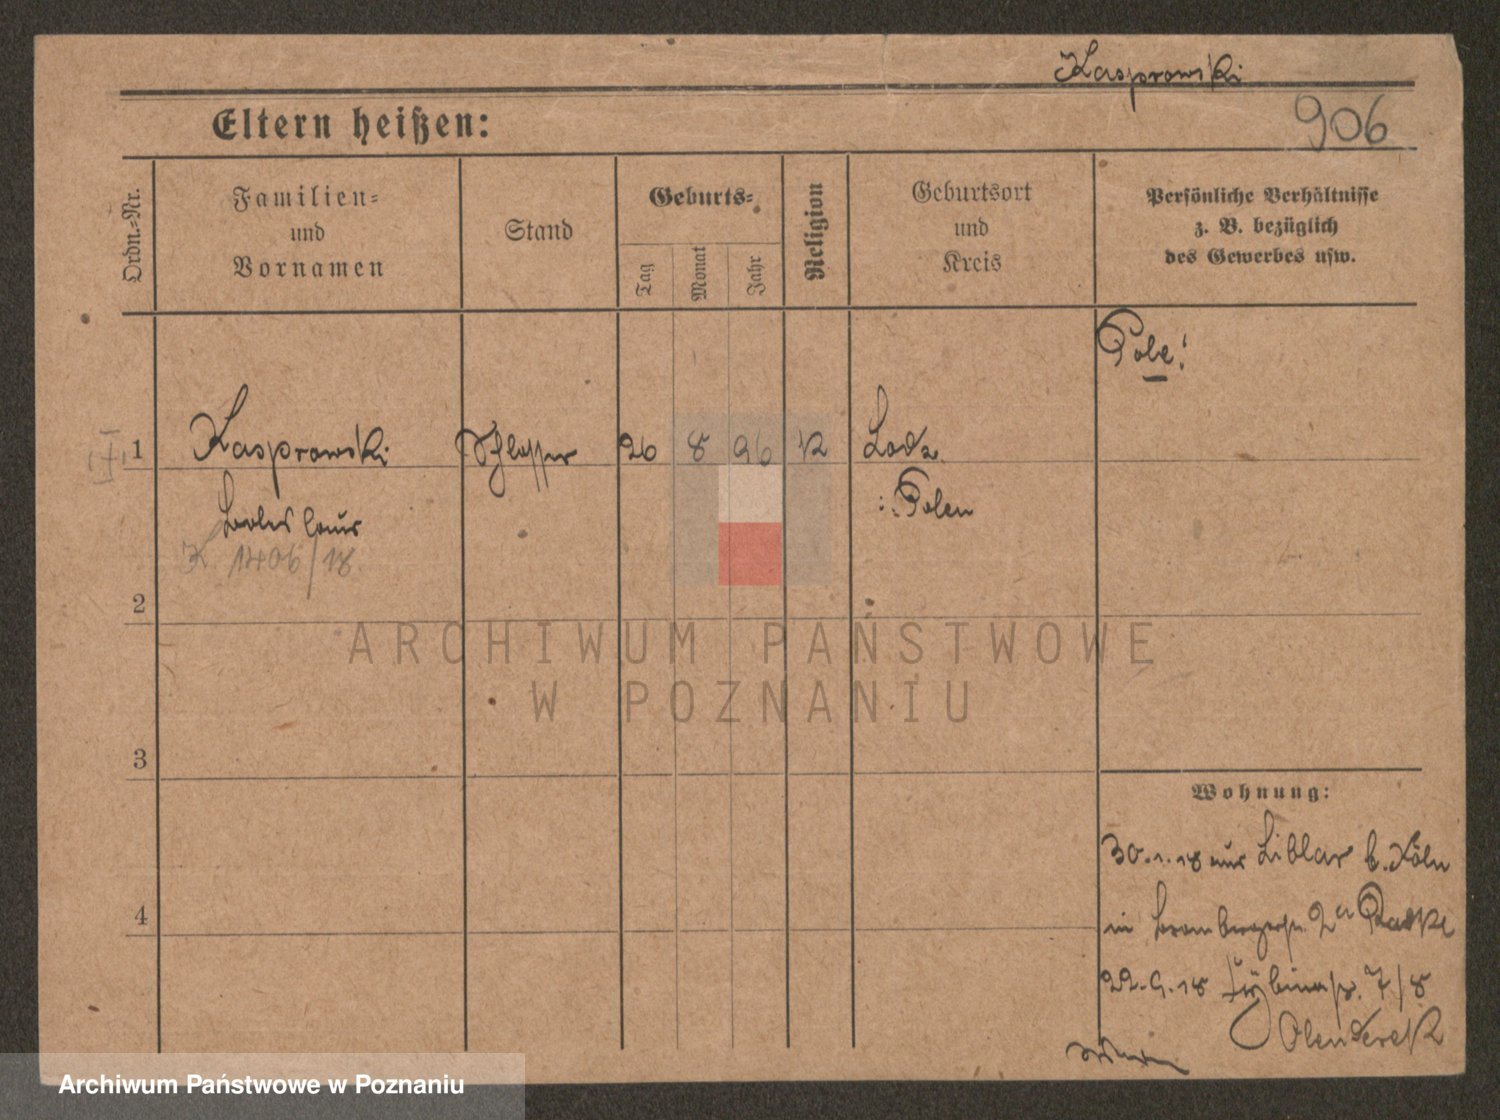 Kasprowski
Eltern heißen:
906
Ordn.-Nr.
Familien-
und
Vornamen
Stand
Geburts-
Tag
Monat
Jahr
Religion
Geburtsort
und
Kreis
Persönliche Verhältnisse
z. B. bezüglich
des Gewerbes usw.
Pole!
1
Kasprowski Schlosser 26 8 96 K Lodz
Boleslaus
:Polen
K. 1706/18.
2
ARCHIWUM PAŃSTWOWE
W POZNANIU
3
Wohnung:
30.1.18 aus Liblar b. Köln
4
in Brombergerstr. 2a
22.9.18 7/8
Olenderek
Archiwum Państwowe w Poznaniu